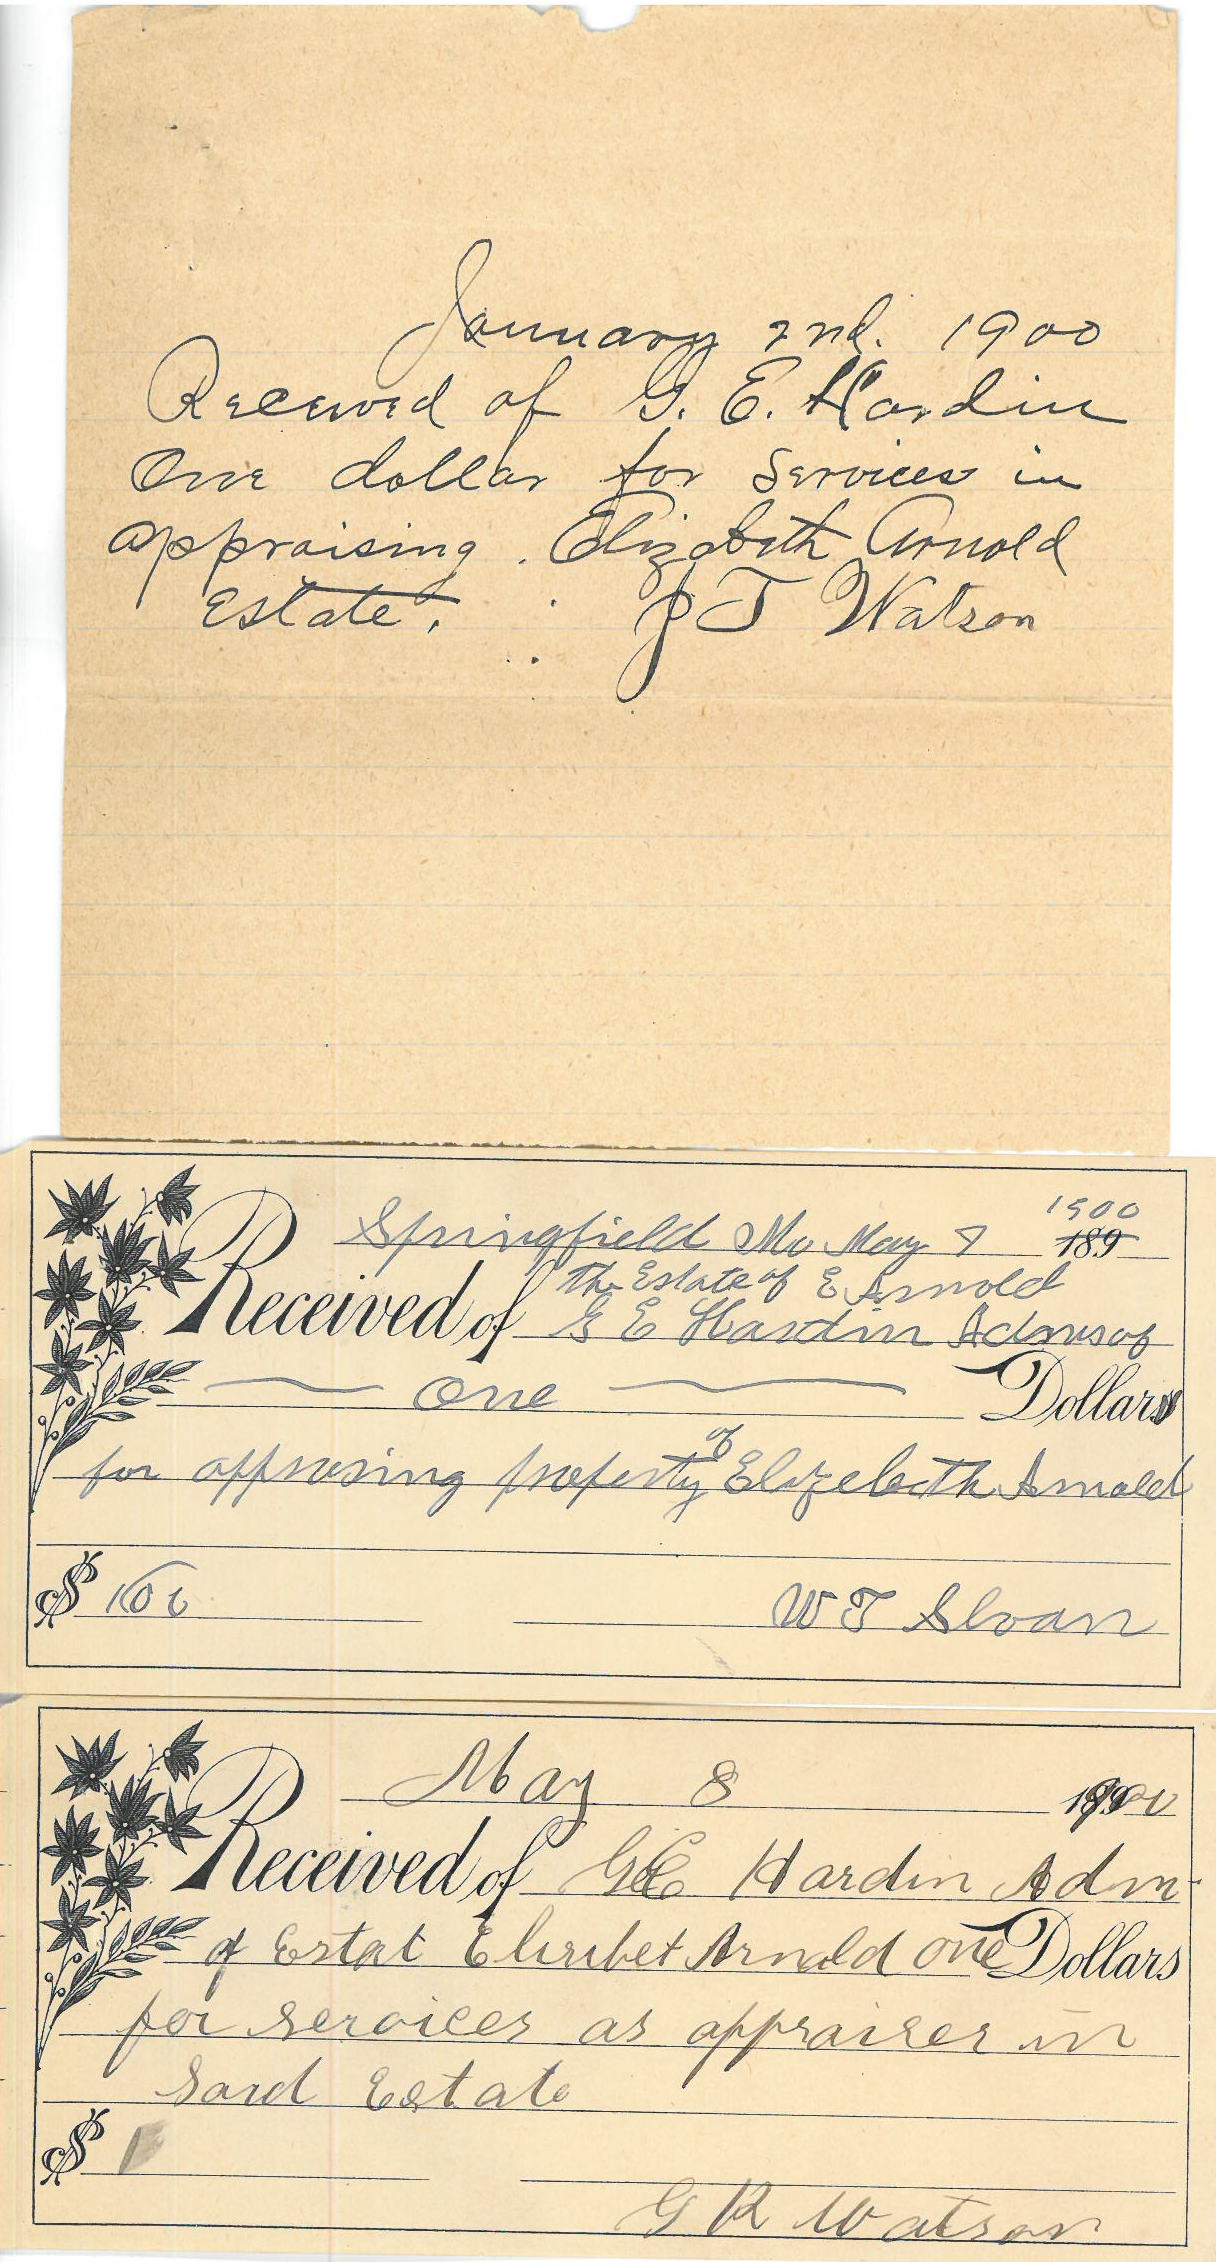 January 2nd. 1900
Received of G. E. Hardin
One dollar for Services in
appraising. Elizabeth Arnold
Estate. J T Watson
1900
Springfield Mo May 7 189
the Estate of E Arnold
Received of G E Hardin
One Dollars
of
for appraising property Elizebeth Arnold
$ 100
W T Sloan
May 8 1900
Received of G E Hardin Adm
of Estat Elisibet Arnold one Dollars
for services as appraiser in
Said Estate
$ 1
G R Watson